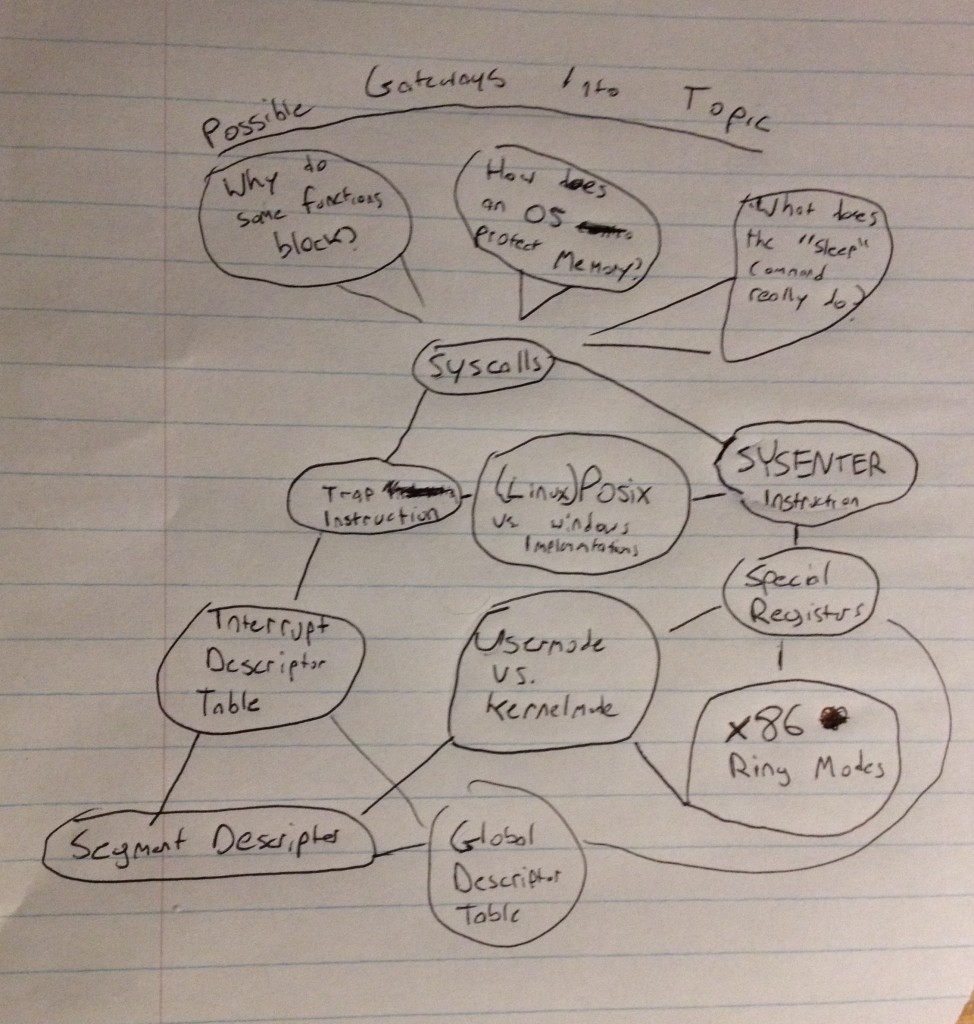 Possible Gateways Into Topic
Why do
some functions
block?
How does
an OS
Protect Memory?
What does
the "sleep"
command
really do?
Syscalls
Trap
Instruction
(Linux) Posix
vs windows
SYSENTER
Instruction
Special
Registers
Interrupt
Descriptor
Table
Usermode
vs.
Kernelmode
x86
Ring Modes
Segment Descriptor
Global
Descriptor
Table